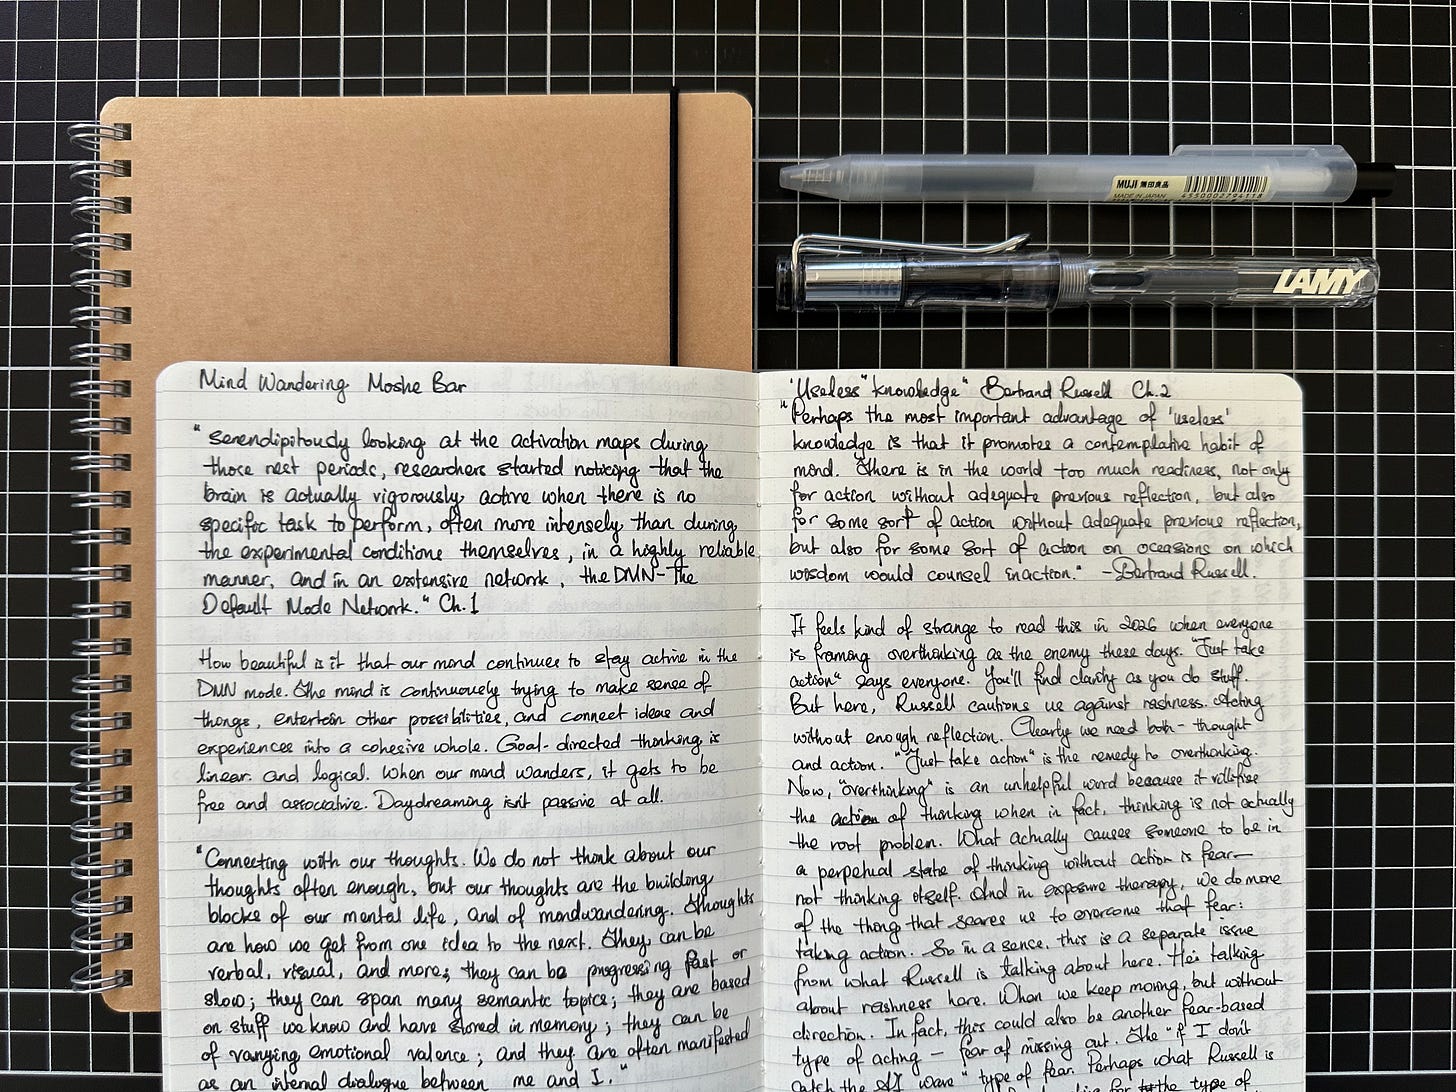 MUJI 無印良品
MADE IN JAPAN
4550002794118
LAMY
Mind Wandering Moshe Bar
"Serendipitously looking at the activation maps during
those rest periods, researchers started noticing that the
brain is actually vigorously active when there is no
specific task to perform, often more intensely than during
the experimental conditions themselves, in a highly reliable
manner, and in an extensive network, the DMN - The
Default Mode Network." Ch.1
How beautiful is it that our mind continues to stay active in the
DMN mode. The mind is continuously trying to make sense of
things, entertain other possibilities, and connect ideas and
experiences into a cohesive whole. Goal-directed thinking is
linear and logical. When our mind wanders, it gets to be
free and associative. Daydreaming isn't passive at all.
"Connecting with our thoughts. We do not think about our
thoughts often enough, but our thoughts are the building
blocks of our mental life, and of mindwandering. Thoughts
are how we get from one idea to the next. They can be
verbal, visual, and more; they can be progressing fast or
slow; they can span many semantic topics; they are based
on stuff we know and have stored in memory; they can be
of varying emotional valence; and they are often manifested
as an internal dialogue between me and I."
"Useless" knowledge" Bertrand Russell Ch.2
"Perhaps the most important advantage of 'useless'
knowledge is that it promotes a contemplative habit of
mind. There is in the world too much readiness, not only
for action without adequate previous reflection, but also
for some sort of action without adequate previous reflection,
but also for some sort of action on occasions on which
wisdom would counsel inaction." - Bertrand Russell.
It feels kind of strange to read this in 2026 when everyone
is framing overthinking as the enemy these days. "Just take
action" says everyone. You'll find clarity as you do stuff.
But here, Russell cautions us against rashness. Acting
without enough reflection. Clearly we need both - thought
and action. "Just take action" is the remedy to overthinking.
Now, "overthinking" is an unhelpful word because it vilifies
the action of thinking when in fact, thinking is not actually
the root problem. What actually causes someone to be in
a perpetual state of thinking without action is fear—
not thinking itself. And in exposure therapy, we do more
of the thing that scares us to overcome that fear:
taking action. So in a sense, this is a separate issue
from what Russell is talking about here. He's talking
about rashness here. When we keep moving, but without
direction. In fact, this could also be another fear-based
type of acting — fear of missing out. The "if I don't
catch the AI wave" type of fear. Perhaps what Russell is
for the type of